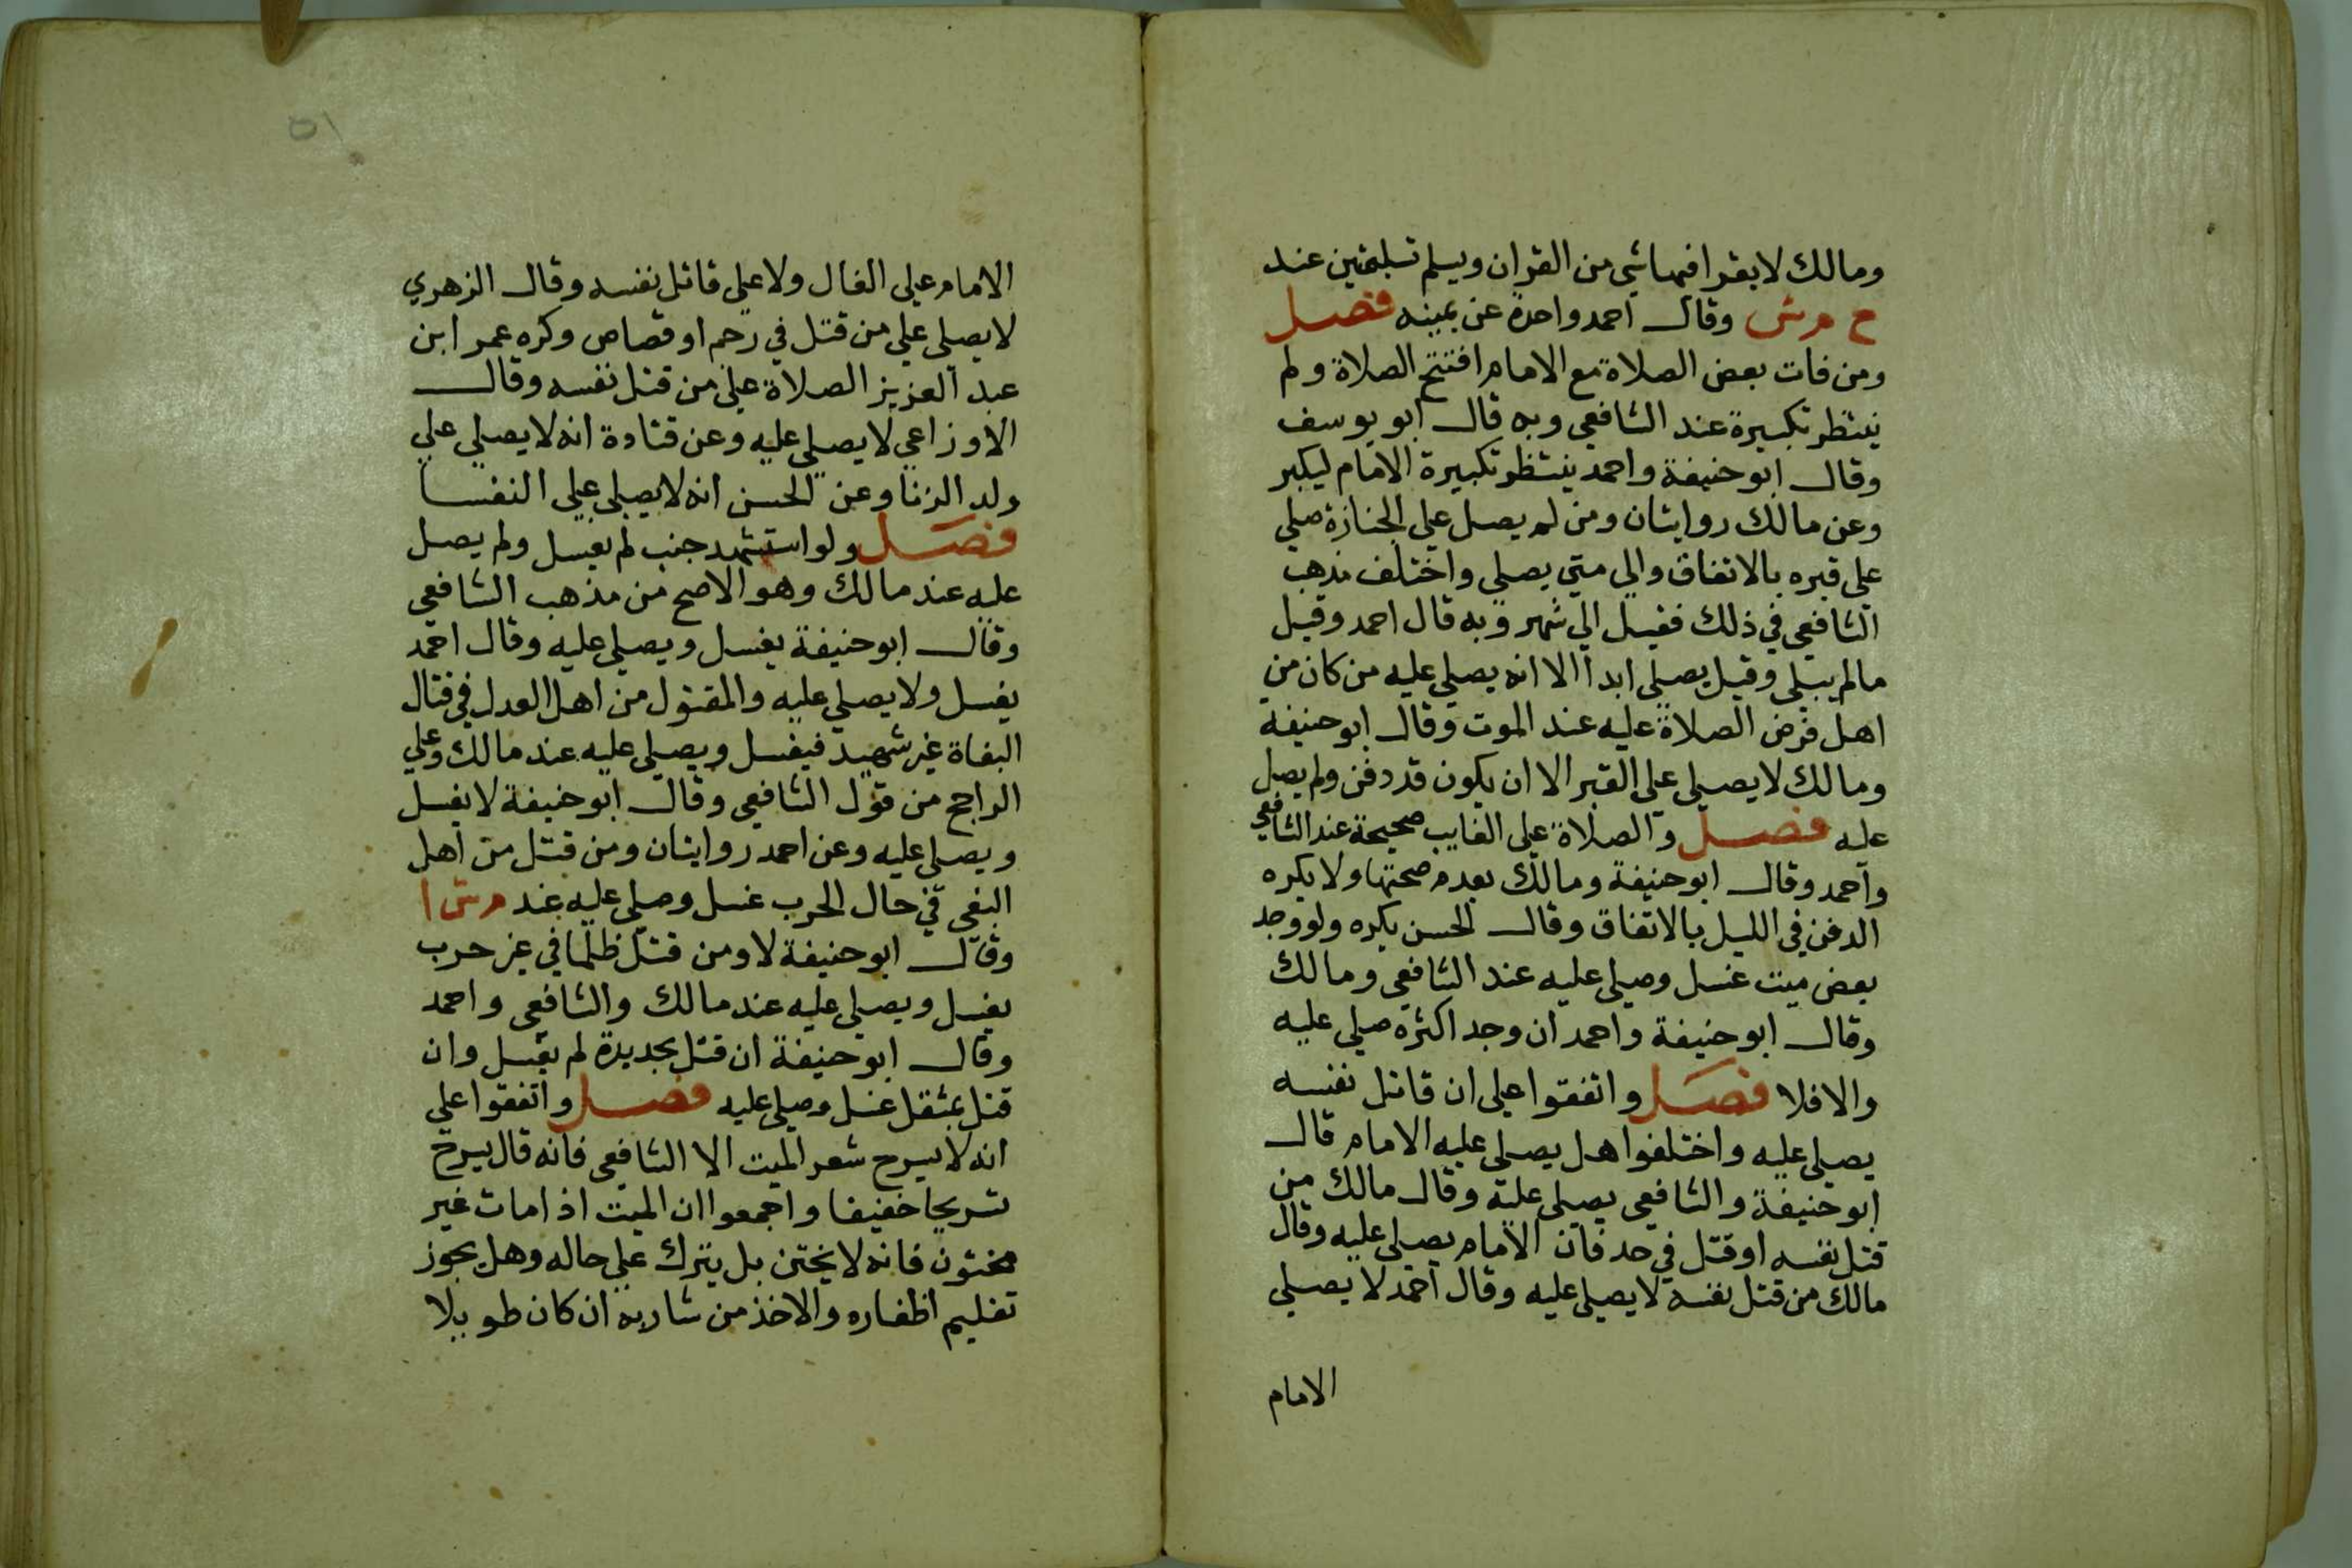 ومالك لا يقرا فيها شي من القران ويسلم تسليمتين عند
ح م ش وقال احمد واحدة عن يمينه فصل
ومن فات بعض الصلاة مع الامام افتتح الصلاة ولم
ينتظر تكبيرة عند الشافعي وبه قال ابو يوسف
وقال ابو حنيفة واحمد ينتظر تكبيرة الامام ليكبر
وعن مالك روايتان ومن لم يصل علي الجنازة صلي
علي قبره بالاتفاق والي متي يصلي واختلف مذهب
الشافعي في ذلك فقيل الي شهر وبه قال احمد وقيل
مالم يبلي وقيل يصلي ابدا الا انه يصلي عليه من كان من
اهل فرض الصلاة عليه عند الموت وقال ابو حنيفة
ومالك لا يصلي علي القبر الا ان يكون قد دفن ولم يصل
عليه فصل والصلاة علي الغايب صحيحة عند الشافعي
واحمد وقال ابو حنيفة ومالك بعدم صحتها ولا يكره
الدفن في الليل بالاتفاق وقال الحسن يكره ولو وجد
بعض ميت غسل وصلي عليه عند الشافعي ومالك
وقال ابو حنيفة واحمد ان وجد اكثره صلي عليه
والا فلا فصل واتفقوا علي ان قاتل نفسه
يصلي عليه واختلفوا هل يصلي عليه الامام قال
ابو حنيفة والشافعي يصلي عليه وقال مالك من
قتل نفسه او قتل في حد فان الامام يصلي عليه وقال
مالك من قتل نفسه لا يصلي عليه وقال احمد لا يصلي
الامام
٥١
الامام علي الغال ولا علي قاتل نفسه وقال الزهري
لا يصلي علي من قتل في رجم او قصاص وكره عمر ابن
عبد العزيز الصلاة علي من قتل نفسه وقال
الاوزاعي لا يصلي عليه وعن قتادة انه لا يصلي علي
ولد الزنا وعن الحسن انه لا يصلي علي النفسا
فصل ولو استشهد جنب لم يغسل ولم يصل
عليه عند مالك وهو الاصح من مذهب الشافعي
وقال ابو حنيفة يغسل ويصلي عليه وقال احمد
يغسل ولا يصلي عليه والمقتول من اهل العدل في قتال
البغاة غير شهيد فيغسل ويصلي عليه عند مالك وعلي
الراجح من قول الشافعي وقال ابو حنيفة لا يغسل
ويصلي عليه وعن احمد روايتان ومن قتل من اهل
البغي في حال الحرب غسل وصلي عليه عند م ش ا
وقال ابو حنيفة لا ومن قتل ظلما في غير حرب
يغسل ويصلي عليه عند مالك والشافعي واحمد
وقال ابو حنيفة ان قتل بحديدة لم يغسل وان
قتل بمثقل غسل وصلي عليه فصل واتفقوا علي
انه لا يسرح شعر الميت الا الشافعي فانه قال يسرح
تسريحا خفيفا واجمعوا ان الميت اذا مات غير
مختون فانه لا يختن بل يترك علي حاله وهل يجوز
تقليم اظفاره والاخذ من شاربه ان كان طويلا